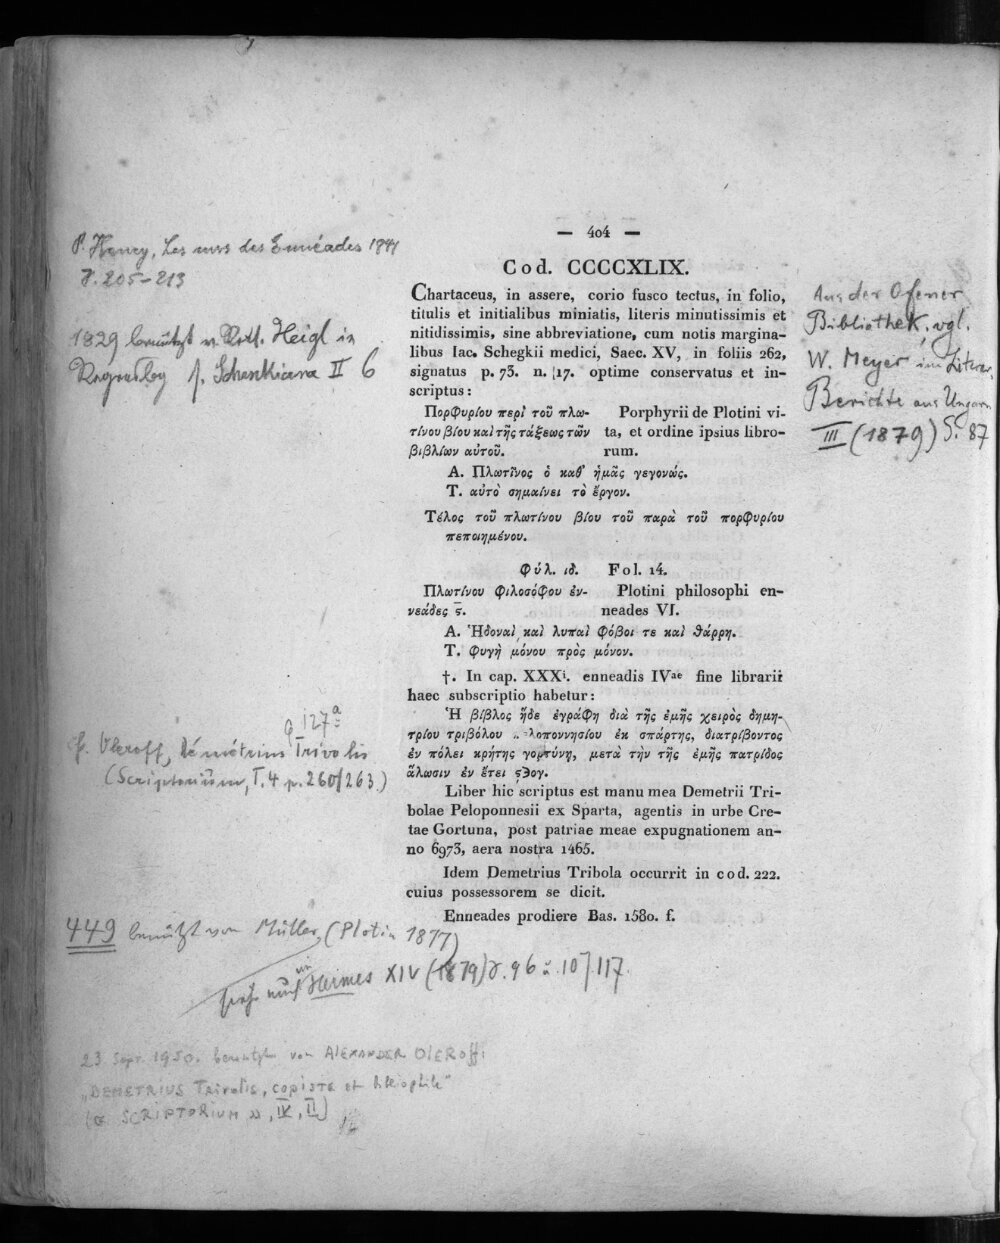 — 404 —
Cod. CCCCXLIX.
Chartaceus, in assere, corio fusco tectus, in folio,
titulis et initialibus miniatis, literis minutissimis et
nitidissimis, sine abbreviatione, cum notis margina-
libus Iac. Schegkii medici, Saec. XV, in foliis 262,
signatus p. 73. n. 17. optime conservatus et in-
scriptus:
Πορφυρίου περὶ τοῦ πλω- Porphyrii de Plotini vi-
τίνου βίου καὶ τῆς τάξεως τῶν ta, et ordine ipsius libro-
βιβλίων αὐτοῦ. rum.
Α. Πλωτῖνος ὁ καθ' ἡμᾶς γεγονώς.
Τ. αὐτὸ σημαίνει τὸ ἔργον.
Τέλος τοῦ πλωτίνου βίου τοῦ παρὰ τοῦ πορφυρίου
πεποιημένου.
Φύλ. ιδ. Fol. 14.
Πλωτίνου φιλοσόφου ἐν- Plotini philosophi en-
νεάδες ς. neades VI.
Α. Ἡδοναὶ καὶ λυπαὶ φόβοι τε καὶ θάρρη.
Τ. φυγὴ μόνου πρὸς μόνον.
†. In cap. XXXi. enneadis IVae fine librarii
haec subscriptio habetur:
Ἡ βίβλος ἥδε ἐγράφη διὰ τῆς ἐμῆς χειρὸς δημη-
τρίου τριβόλου .. λοποννησίου ἐκ σπάρτης, διατρίβοντος
ἐν πόλει κρήτης γορτύνη, μετὰ τὴν τῆς ἐμῆς πατρίδος
ἅλωσιν ἐν ἔτει ϛϡογ.
Liber hic scriptus est manu mea Demetrii Tri-
bolae Peloponnesii ex Sparta, agentis in urbe Cre-
tae Gortuna, post patriae meae expugnationem an-
no 6973, aera nostra 1465.
Idem Demetrius Tribola occurrit in cod. 222.
cuius possessorem se dicit.
Enneades prodiere Bas. 1580. f.
P. Henry, Les mss des Ennéades 1941
S. 205-213
1829 benützt v. Prof. Heigl in
Regensbg s. Schenkiana II 6
Aus der Ofener
Bibliothek, vgl.
W. Meyer im Literar.
Berichte aus Ungarn
III (1879) S. 87
127a
Oleroff, Démétrius Trivolis
(Scriptorium, T. 4 p. 260/263.)
449 benützt von Müller (Plotin 1877)
siehe auch in Hermes XIV (1879) S. 96 u. 107 117.
23 Sept. 1950. benutzt von ALEXANDER OLEROFF:
„DEMETRIUS Trivolis, copiste et bibliophile"
SCRIPTORIUM », IV, II)